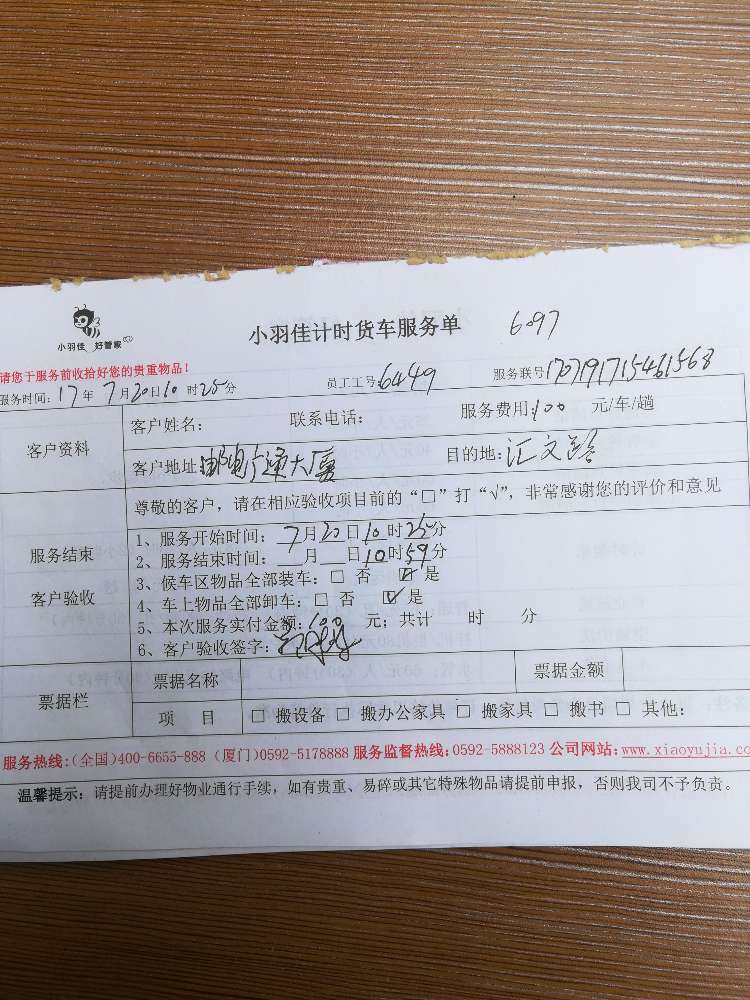 小羽佳 好管家
小羽佳计时货车服务单 6097
请您于服务前收拾好您的贵重物品！
服务时间：17年7月20日10时25分 员工工号：6449 服务联号：170719171546 1568
客户资料
客户姓名： 联系电话： 服务费用：100 元/车/趟
客户地址：邮电交通大厦 目的地：汇文路
尊敬的客户，请在相应验收项目前的“□”打“√”，非常感谢您的评价和意见
服务结束
客户验收
1、服务开始时间：7月20日10时25分
2、服务结束时间：__月__日10时59分
3、候车区物品全部装车：□ 否 ☑ 是
4、车上物品全部卸车：□ 否 ☑ 是
5、本次服务实付金额：100 元；共计 时 分
6、客户验收签字：
票据栏
票据名称 票据金额
项 目 □ 搬设备 □ 搬办公家具 □ 搬家具 □ 搬书 □ 其他：
服务热线：(全国)400-6655-888 (厦门)0592-5178888 服务监督热线：0592-5888123 公司网站：www.xiaoyujia.co
温馨提示：请提前办理好物业通行手续，如有贵重、易碎或其它特殊物品请提前申报，否则我司不予负责。